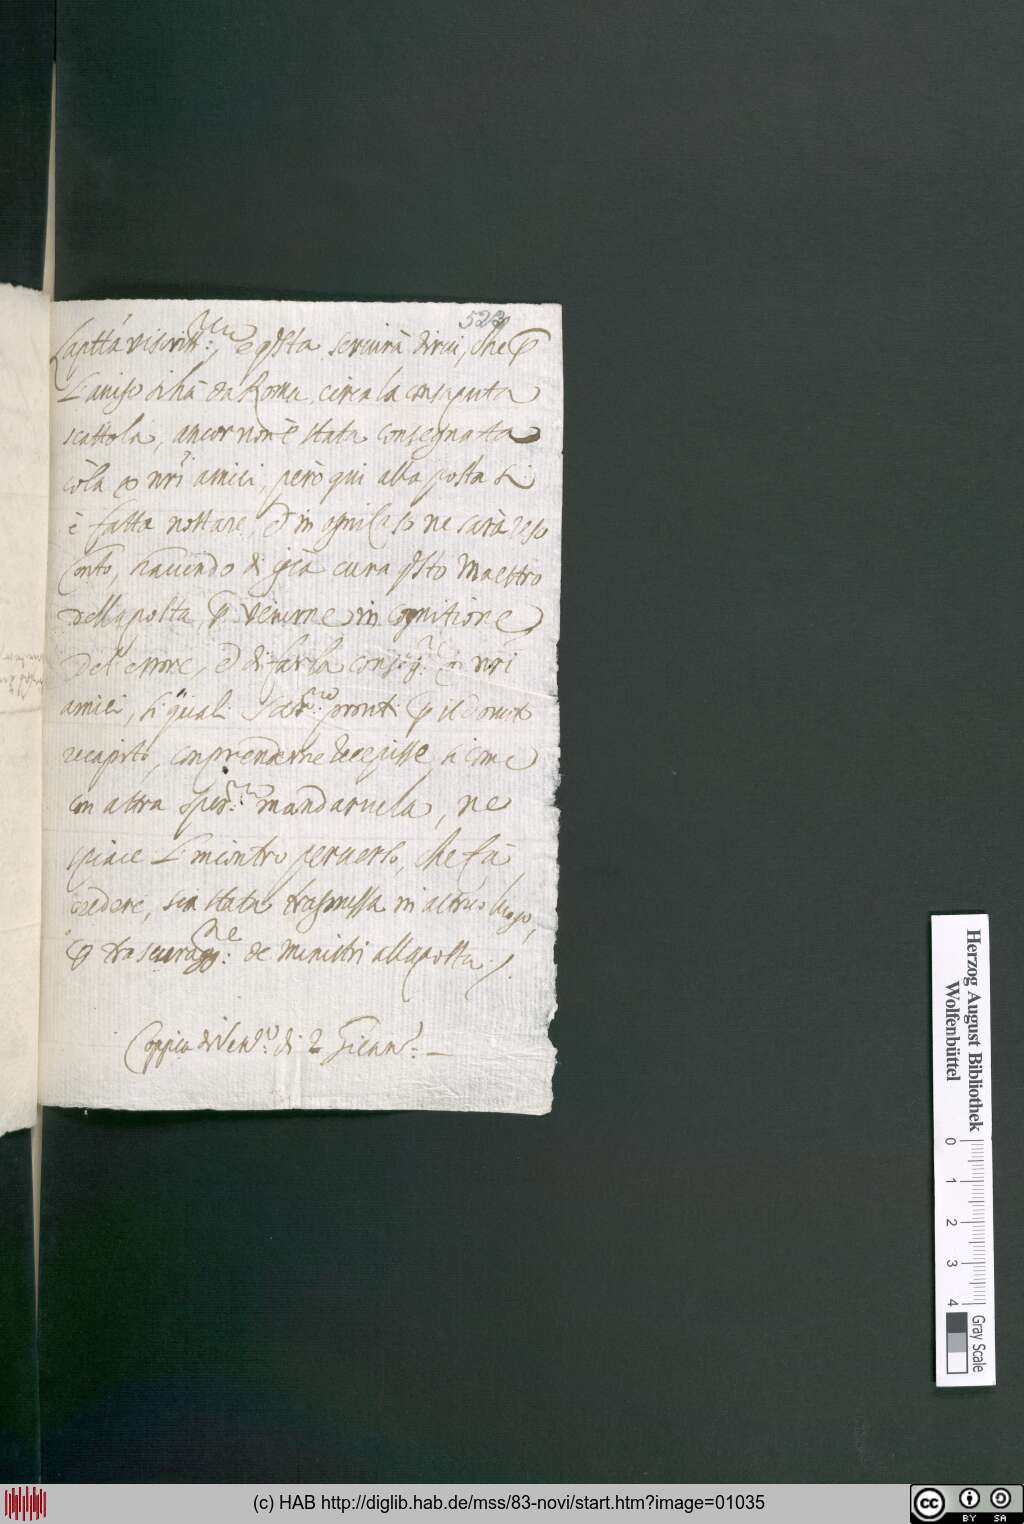 523
La pntta viscritt:, e qsta servirà dirui, che p
L'auiso si hà da Roma, circa la consaputa
scattola, ancor non è stata consegnatta
còla a nri amici, però qui alla posta si
è fatta nottare, et in ogni caso ne sarà reso
Conto, hauendo di già cura qsto Maestro
della posta, p venirne in cognitione
del errore, et di farla conseg: a nri
amici, li quali pronti p il douuto
recapito, con prenderne Recepisse, si come
con altra sper: mandaruela, ne
spiace L'incontro peruerso, che fà
credere, sia stata trasmessa in altro luogo,
p trascurag: de Ministri alla posta
Coppia di Ven: di 2 Genn:
Herzog August Bibliothek
Wolfenbüttel
0 1 2 3 4
Gray Scale
(c) HAB http://diglib.hab.de/mss/83-novi/start.htm?image=01035
cc BY SA